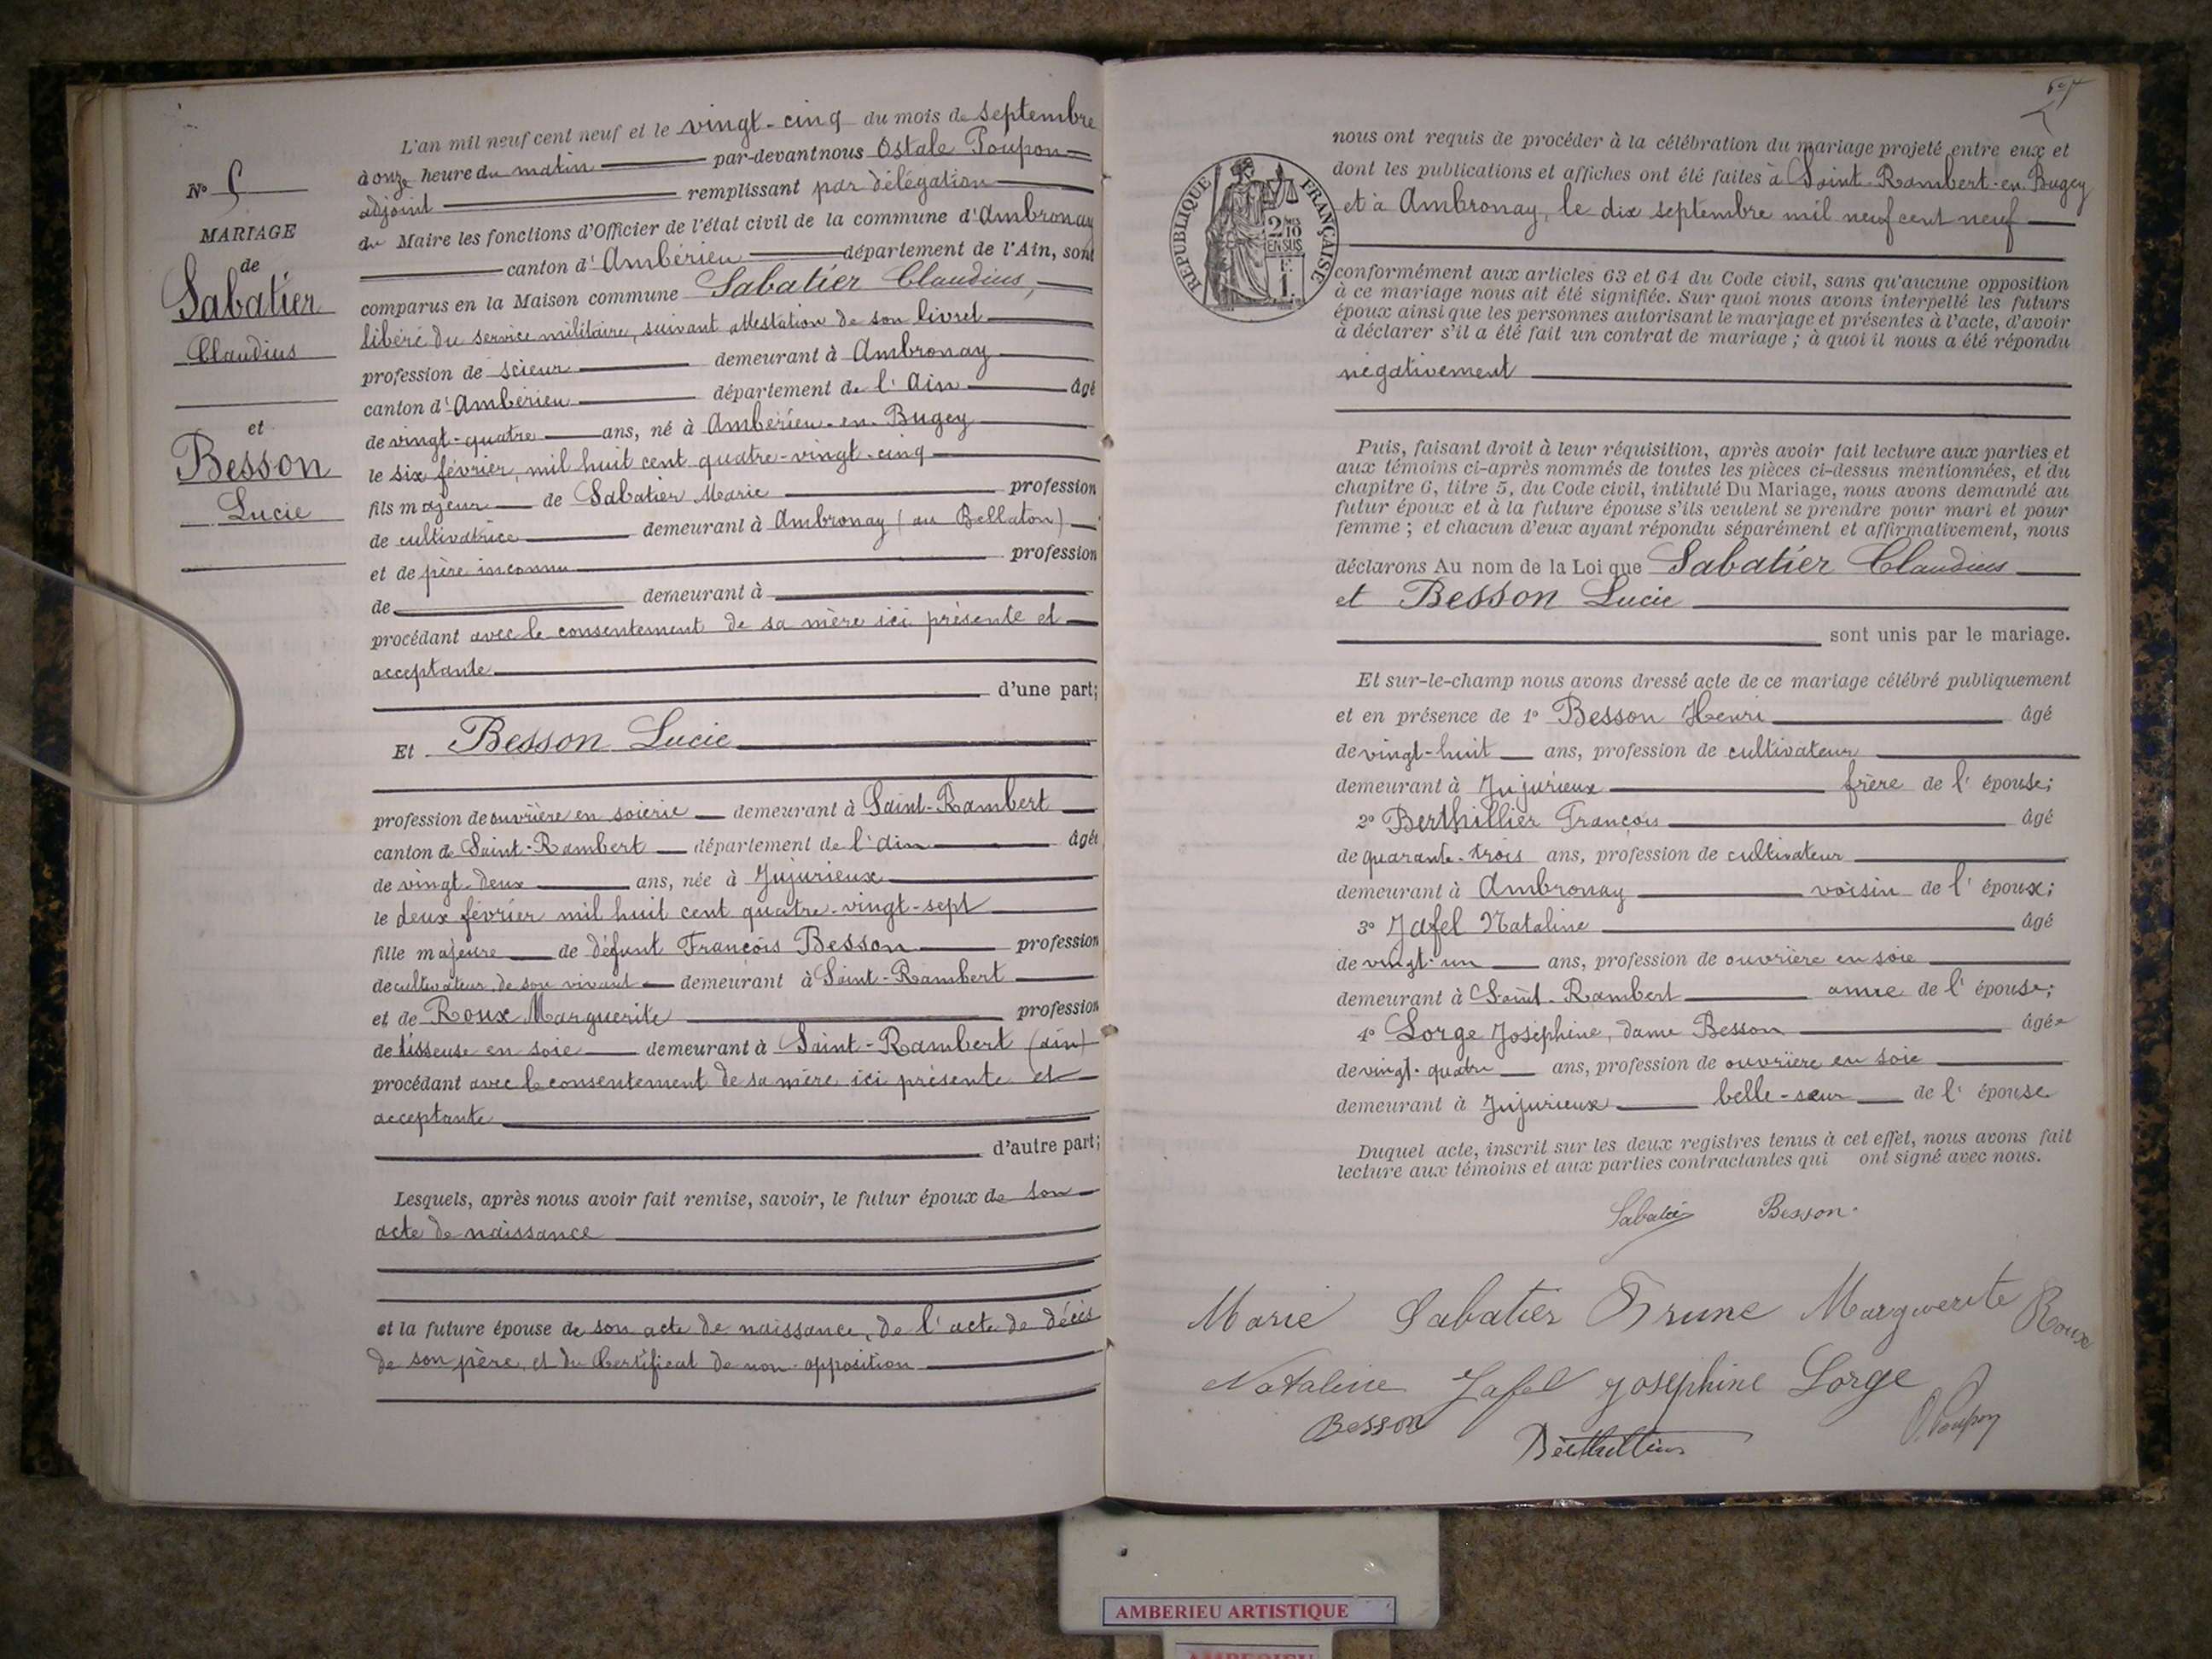 N° 5
MARIAGE
de
Sabatier
Claudius
et
Besson
Lucie
L'an mil neuf cent neuf et le vingt-cinq du mois de septembre
à onze heure du matin par-devant nous Ostale Poupon
adjoint remplissant par délégation
du Maire les fonctions d'Officier de l'état civil de la commune d'Ambronay
canton d'Ambérieu département de l'Ain, sont
comparus en la Maison commune Sabatier Claudius,
libéré du service militaire, suivant attestation de son livret
profession de scieur demeurant à Ambronay
canton d'Ambérieu département de l'Ain âgé
de vingt-quatre ans, né à Ambérieu-en-Bugey
le six février, mil huit cent quatre-vingt-cinq
fils majeur de Sabatier Marie profession
de cultivatrice demeurant à Ambronay (au Bellaton)
et de père inconnu profession
de demeurant à
procédant avec le consentement de sa mère ici présente et
acceptante
d'une part;
Et Besson Lucie
profession de ouvrière en soierie demeurant à Saint-Rambert
canton de Saint-Rambert département de l'Ain âgée
de vingt-deux ans, née à Jujurieux
le deux février mil huit cent quatre-vingt-sept
fille majeure de défunt François Besson profession
de cultivateur de son vivant demeurant à Saint-Rambert
et de Roux Marguerite profession
de tisseuse en soie demeurant à Saint-Rambert (ain)
procédant avec le consentement de sa mère ici présente et
acceptante
d'autre part;
Lesquels, après nous avoir fait remise, savoir, le futur époux de son
acte de naissance
et la future épouse de son acte de naissance, de l'acte de décès
de son père, et du Certificat de non-opposition
RÉPUBLIQUE FRANÇAISE
2/10 EN SUS
F. 1.
nous ont requis de procéder à la célébration du mariage projeté entre eux et
dont les publications et affiches ont été faites à Saint-Rambert-en-Bugey
et à Ambronay, le dix septembre mil neuf cent neuf
conformément aux articles 63 et 64 du Code civil, sans qu'aucune opposition
à ce mariage nous ait été signifiée. Sur quoi nous avons interpellé les futurs
époux ainsi que les personnes autorisant le mariage et présentes à l'acte, d'avoir
à déclarer s'il a été fait un contrat de mariage ; à quoi il nous a été répondu
négativement
Puis, faisant droit à leur réquisition, après avoir fait lecture aux parties et
aux témoins ci-après nommés de toutes les pièces ci-dessus mentionnées, et du
chapitre 6, titre 5, du Code civil, intitulé Du Mariage, nous avons demandé au
futur époux et à la future épouse s'ils veulent se prendre pour mari et pour
femme ; et chacun d'eux ayant répondu séparément et affirmativement, nous
déclarons Au nom de la Loi que Sabatier Claudius
et Besson Lucie
sont unis par le mariage.
Et sur-le-champ nous avons dressé acte de ce mariage célébré publiquement
et en présence de 1° Besson Henri âgé
de vingt-huit ans, profession de cultivateur
demeurant à Jujurieux frère de l'épouse;
2° Berthillier François âgé
de quarante-trois ans, profession de cultivateur
demeurant à Ambronay voisin de l'époux;
3° Jafel Nataline âgé
de vingt-un ans, profession de ouvrière en soie
demeurant à Saint-Rambert amie de l'épouse;
4° Lorge Joséphine, dame Besson âgée
de vingt-quatre ans, profession de ouvrière en soie
demeurant à Jujurieux belle-sœur de l'épouse
Duquel acte, inscrit sur les deux registres tenus à cet effet, nous avons fait
lecture aux témoins et aux parties contractantes qui ont signé avec nous.
Sabatier Besson
Marie Sabatier Marguerite Roux
Nataline Jafel Joséphine Lorge
Besson Berthillier O. Poupon
AMBERIEU ARTISTIQUE
AMBERIEU